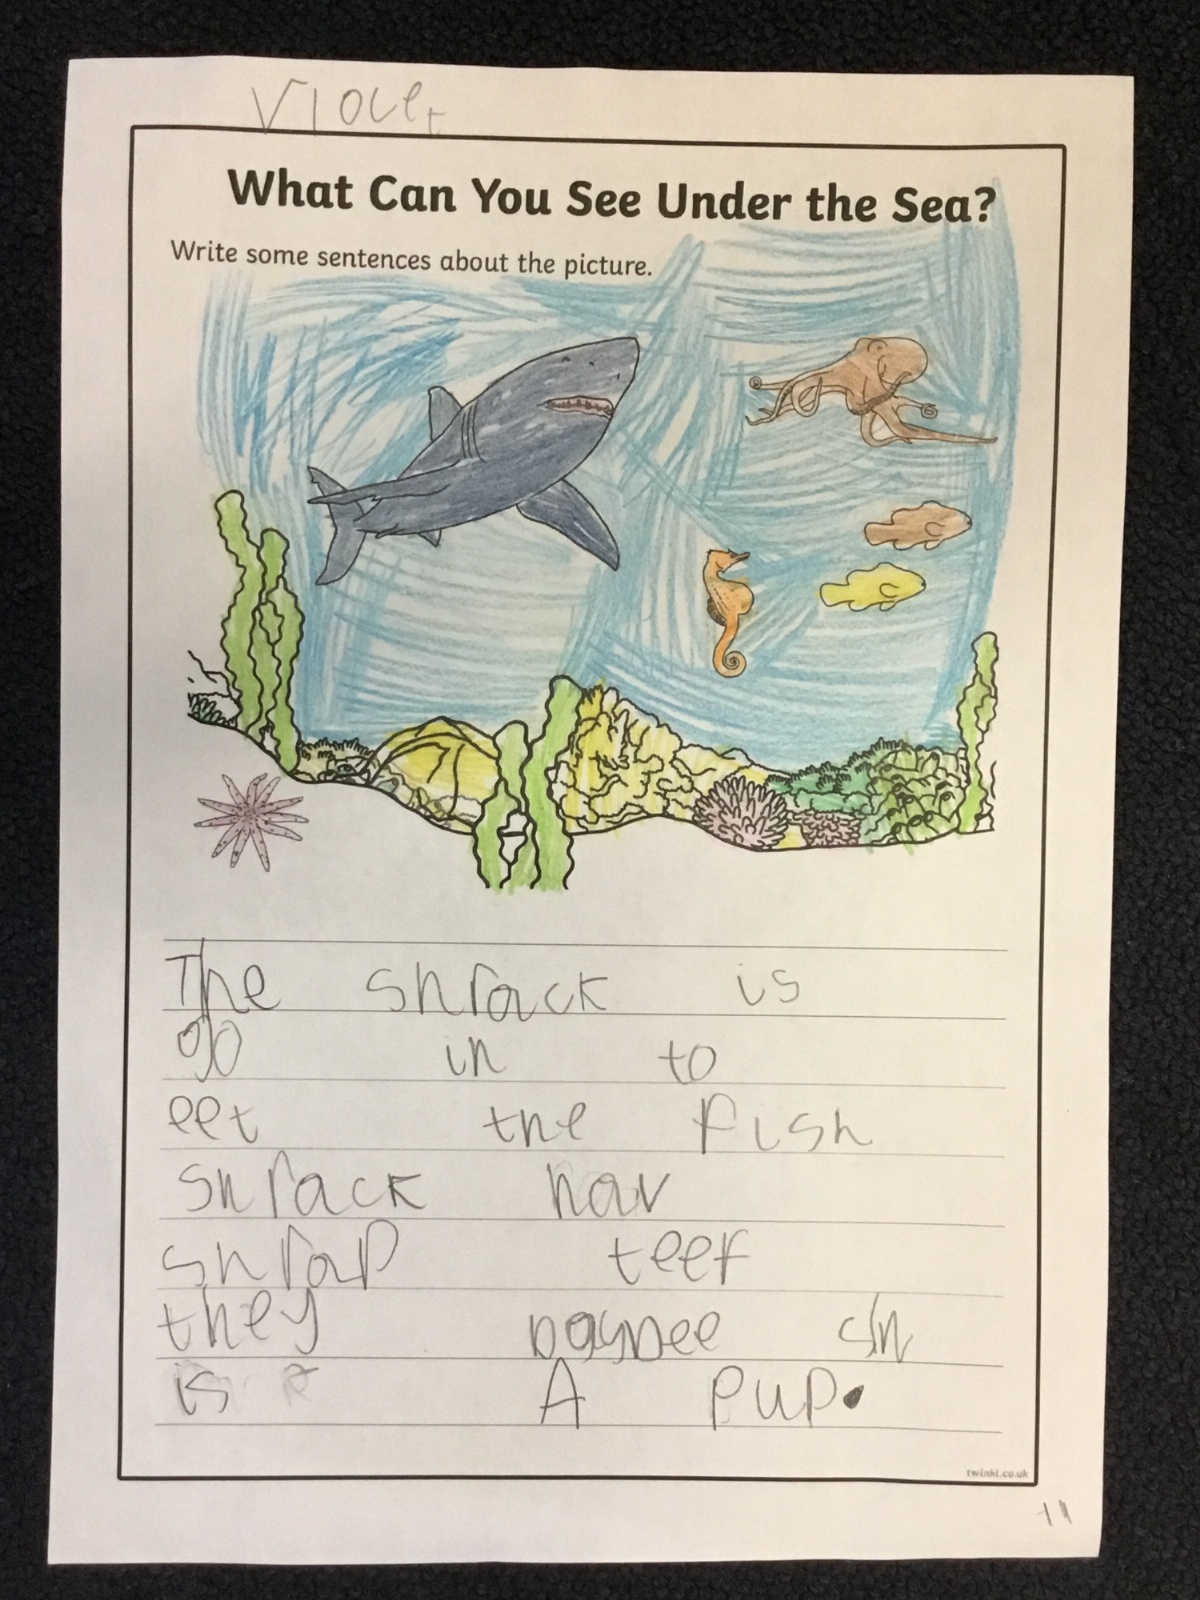 Violet
What Can You See Under the Sea?
Write some sentences about the picture.
The shrack is
go in to
eet the fish
shrack hav
shrap teef
they
is A pup.
twinkl.co.uk